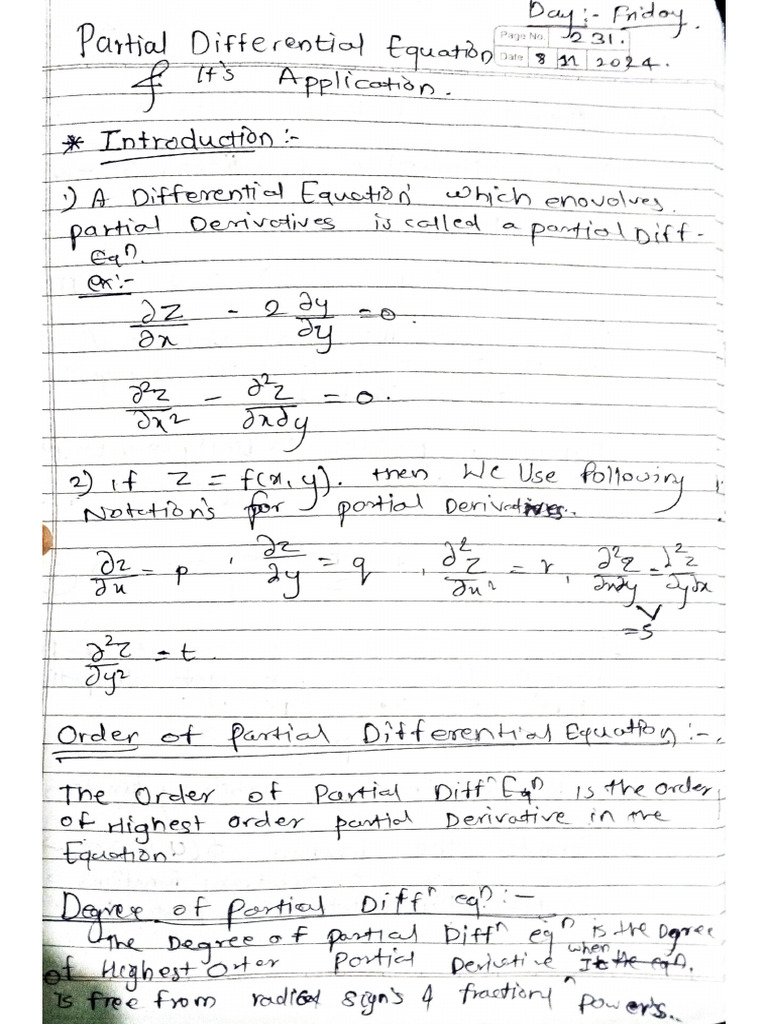 Day :- Friday.
Page No. 231.
Date 8 11 2024.
Partial Differential Equation
& It's Application.
* Introduction :-
1) A Differential Equation which enovolves
partial Derivatives is called a partial Diff-
Eqⁿ.
ex:-
∂z/∂x - 2 ∂y/∂y = 0.
∂²z/∂x² - ∂²z/∂x∂y = 0.
2) if z = f(x, y). then We Use following
Notation's for partial Derivatives.
∂z/∂x = p, ∂z/∂y = q, ∂²z/∂x² = r, ∂²z/∂x∂y = ∂²z/∂y∂x
= s
∂²z/∂y² = t.
Order of Partial Differential Equation :-
The Order of Partial Diffⁿ Eqⁿ is the order
of Highest order partial Derivative in the
Equation.
Degree of Partial Diffⁿ eqⁿ :-
The Degree of partial Diffⁿ eqⁿ is the Degree
of Highest Orter Partial Derivative when It the eqⁿ.
is free from radical sign's & fractionl power's..